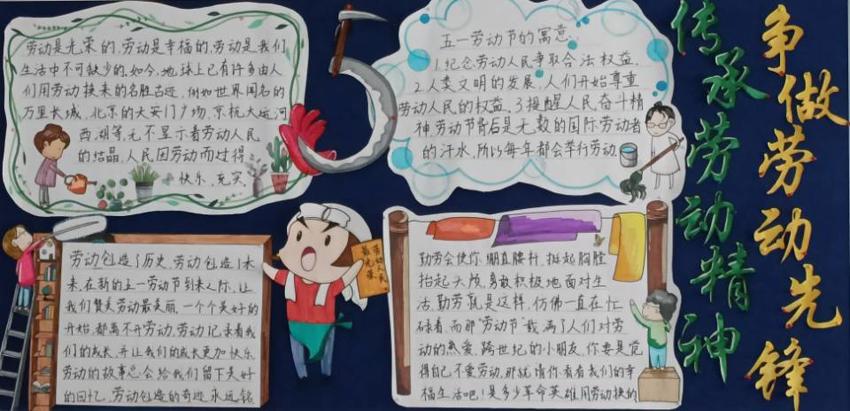 劳动是光荣的,劳动是幸福的,劳动是我们
生活中不可缺少的。如今,地球上已有许多由人
们用劳动换来的名胜古迹,例如世界闻名的
万里长城、北京的天安门广场,京杭大运河
西湖等,无不显示着劳动人民
的结晶,人民因劳动而过得
快乐、充实。
五一劳动节的寓意:
1.纪念劳动人民争取合法权益,
2.人类文明的发展,人们开始尊重
劳动人民的权益,3.提醒人民奋斗精
神劳动节背后是无数的国际劳动者
的汗水,所以每年都会举行劳动。
劳动创造了历史,劳动创造了未
来,在新的五一劳动节到来之际,让
我们赞美劳动最美丽,一个个美好的
开始,都离不开劳动,劳动记录着我
们的成长,并让我们的成长更加快乐
劳动的故事总会给我们留下美好
的回忆,劳动创造的奇迹永远铭
劳动人民
最光荣
勤劳会使你,绷直腰杆,挺起胸膛
抬起大颅,勇敢积极地面对生
活,勤劳就是这样,仿佛一直在忙
碌着,而那"劳动节"载满了人们对劳
动的热爱,跨世纪的小朋友,你要是觉
得自己不爱劳动,那就请你看看我们的幸
福生活吧!是多少革命英雄用劳动换的
传承劳动精神
争做劳动先锋